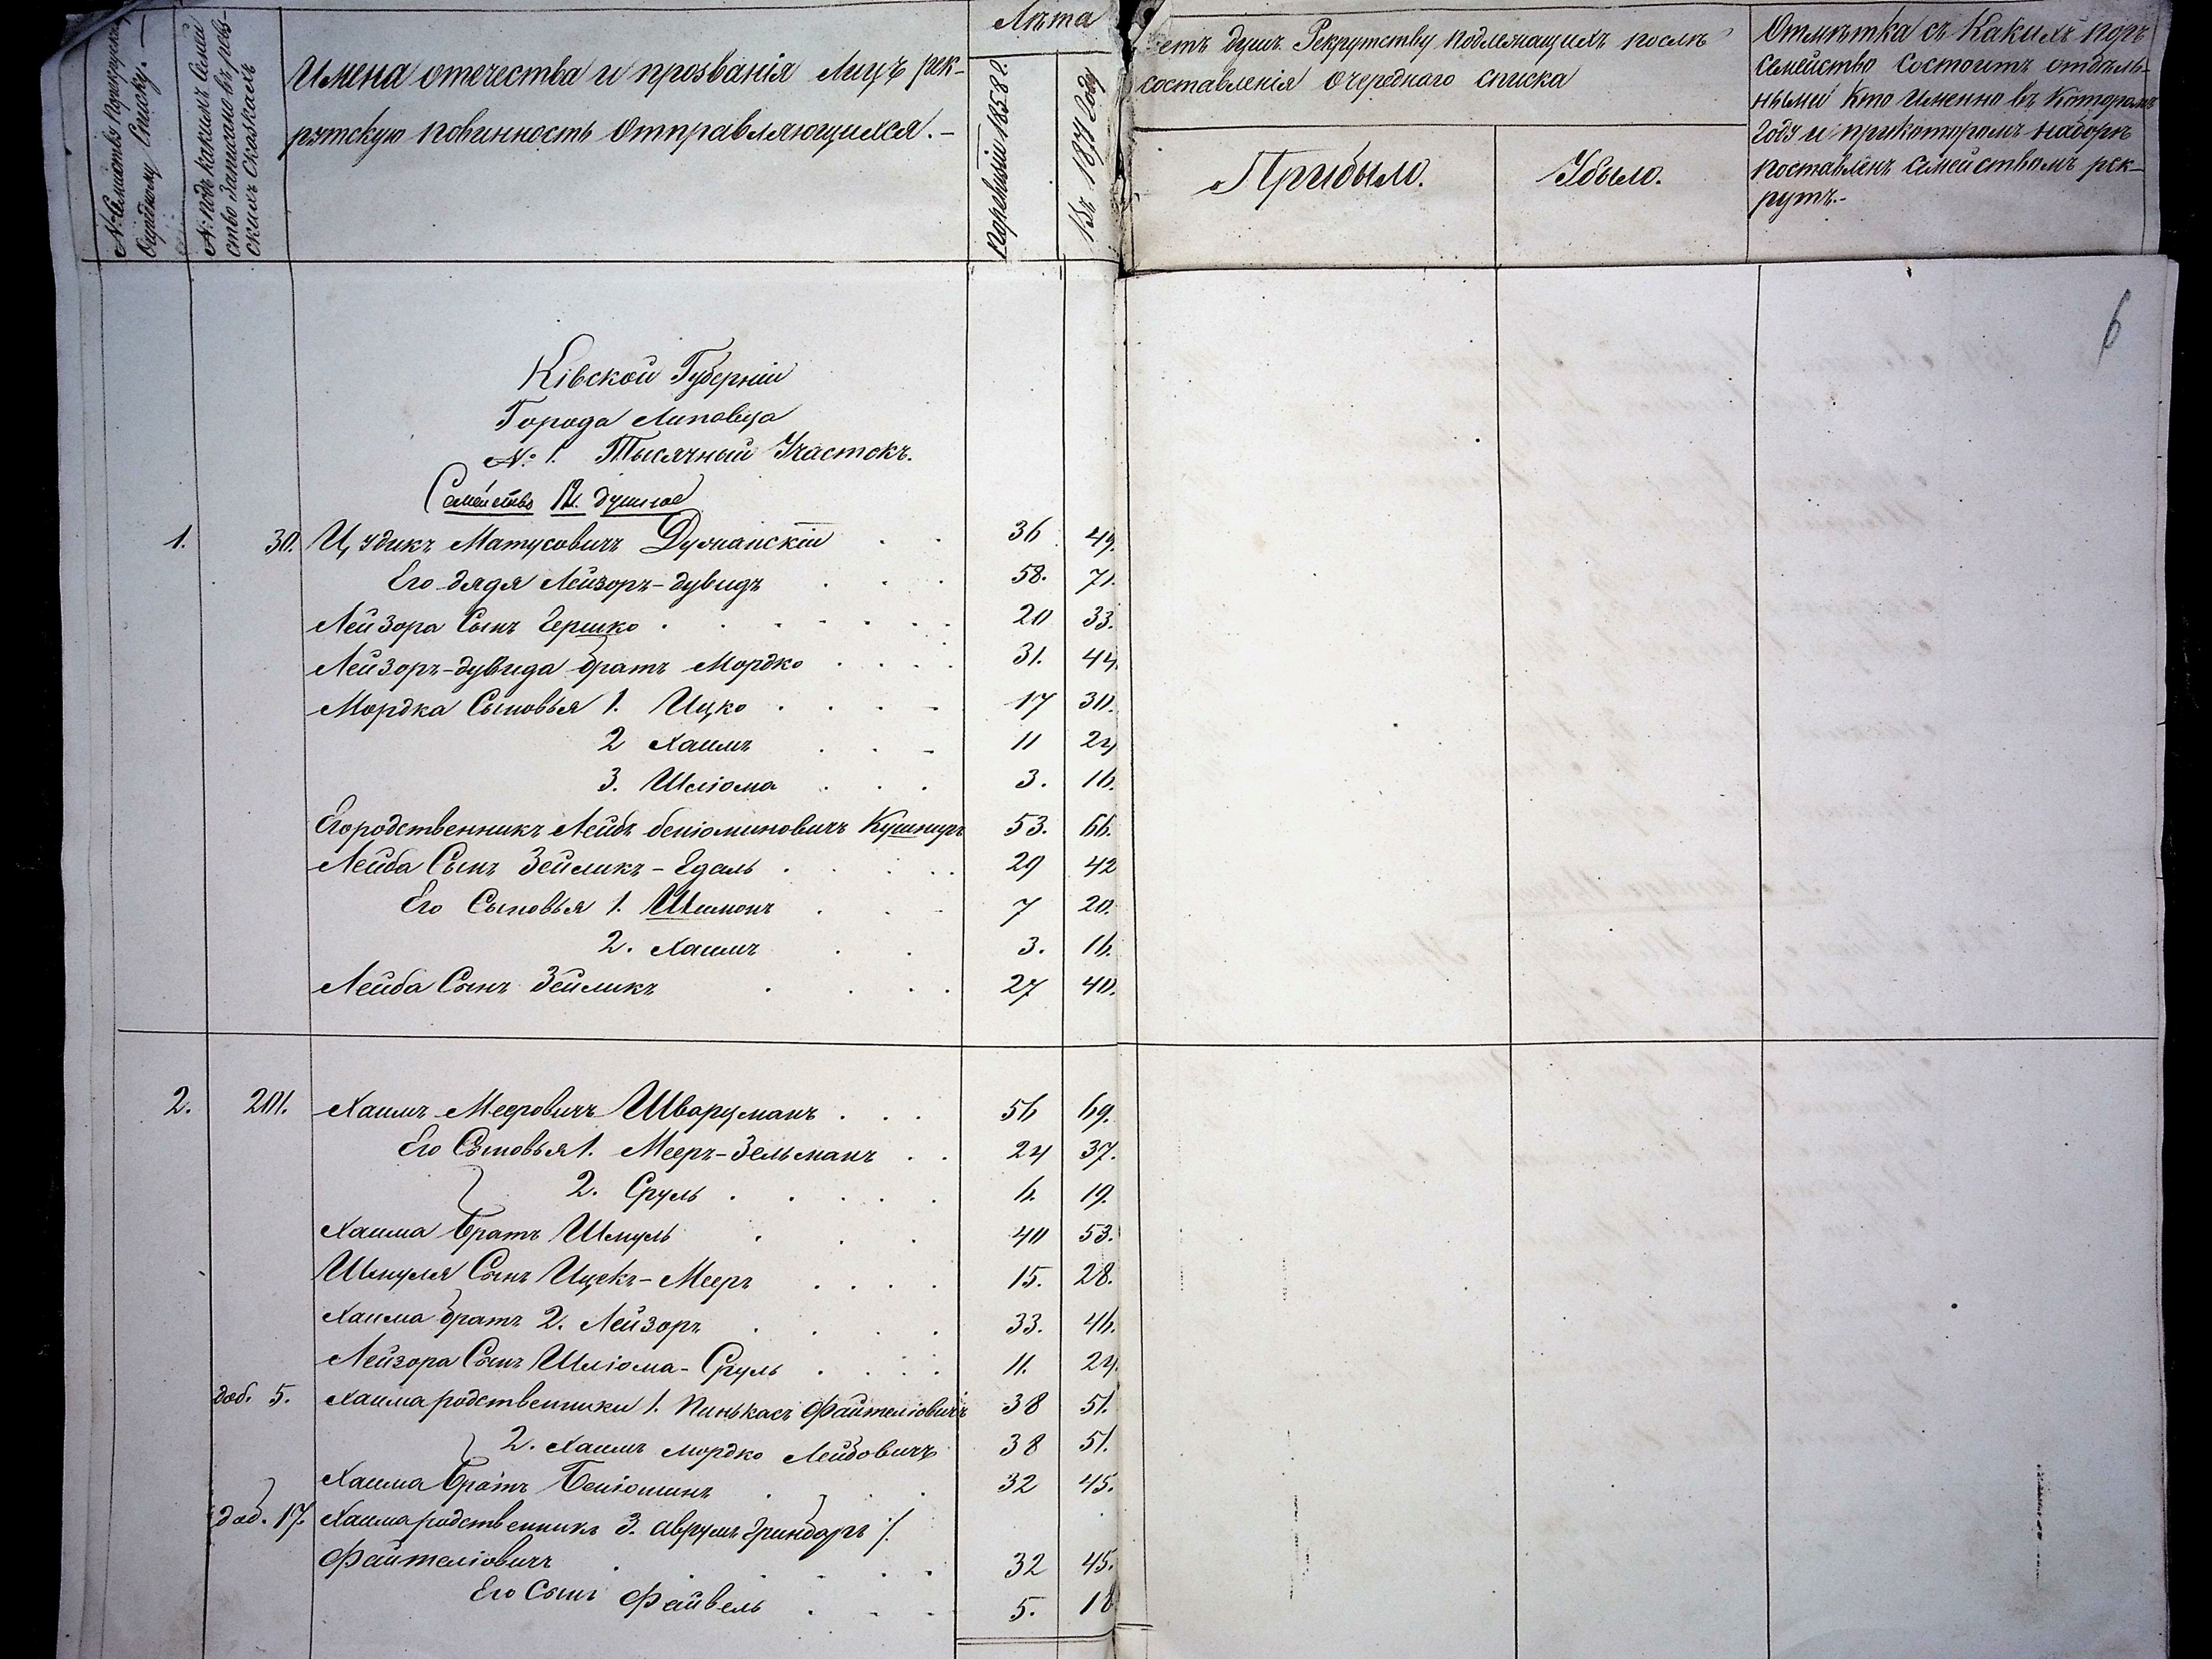 № Семействъ по
Очередному Списку. —
№ подъ какимъ Семей
ство Записано въ реви
скихъ сказкахъ
Имена отечества и прозванія Лицъ рек-
рутскую повинность Отправляющихся. —
Лѣта
По ревизіи 1858 г.
Въ 1871 Году
етъ душъ Рекрутству подлежащихъ послѣ
составленія Очереднаго списка
Прибыло.
Убыло.
Отмѣтка съ Какихъ
Семейство Состоитъ отдѣль-
ными Кто Именно въ Которомъ
Году и прикоторомъ наборѣ
поставленъ Семействомъ рек-
рутъ.-
6
Кіевской Губерніи
Города Липовца
№ 1. Тысячный Участокъ.
Семейство 12. душное
1. 30. Матусовичъ 36 49.
Его дядя Лейзоръ-дувидъ 58. 71.
Лейзора Сынъ Гершко 20 33.
Лейзоръ-дувида братъ Мордко 31. 44.
Мордка Сыновья 1. Ицко 17 30.
2 Хаимъ 11 24
3. Шліома 3. 16.
Егородственникъ Лейбъ беніоминовичъ Кушниръ 53. 66.
Лейба Сынъ Зейликъ- 29 42
Его Сыновья 1. Шимонъ 7 20.
2. Хаимъ 3. 16.
Лейба Сынъ Зейликъ 27 40.
2. 201. Хаимъ Мееровичъ Шварцманъ 56 69.
Его Сыновья 1. Мееръ-Зельманъ 24 37.
2. Сруль 6. 19.
Хаима Братъ Шмуль 40 53.
Шмуля Сынъ Ицекъ-Мееръ 15. 28.
Хаима братъ 2. Лейзоръ 33. 46.
Лейзора Сынъ Шліома-Сруль 11. 24.
доб. 5. Хаима родственники 1. Пинькасъ Файтеліовичъ 38 51.
2. Хаимъ мордко Лейбовичъ 38 51.
Хаима братъ Беніоминъ 32 45.
доб. 17. Хаима родственникъ 3. Аврумъ Гринбаръ /.
Файтеліовичъ 32 45.
Его Сынъ Файвель 5. 18